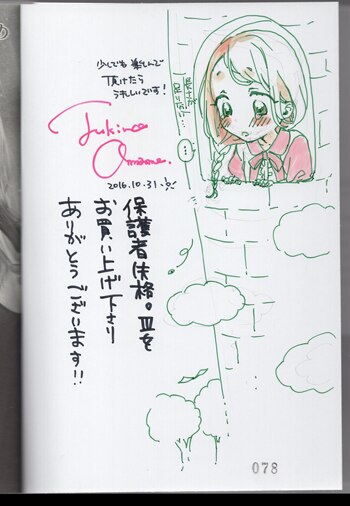 少しでも楽しんで
頂けたら
うれしいです!
長さが
足りない…
…
Yukino
Amane.
2016.10.31
保護者失格。Ⅲを
お買い上げ下さり
ありがとうございます!!
078